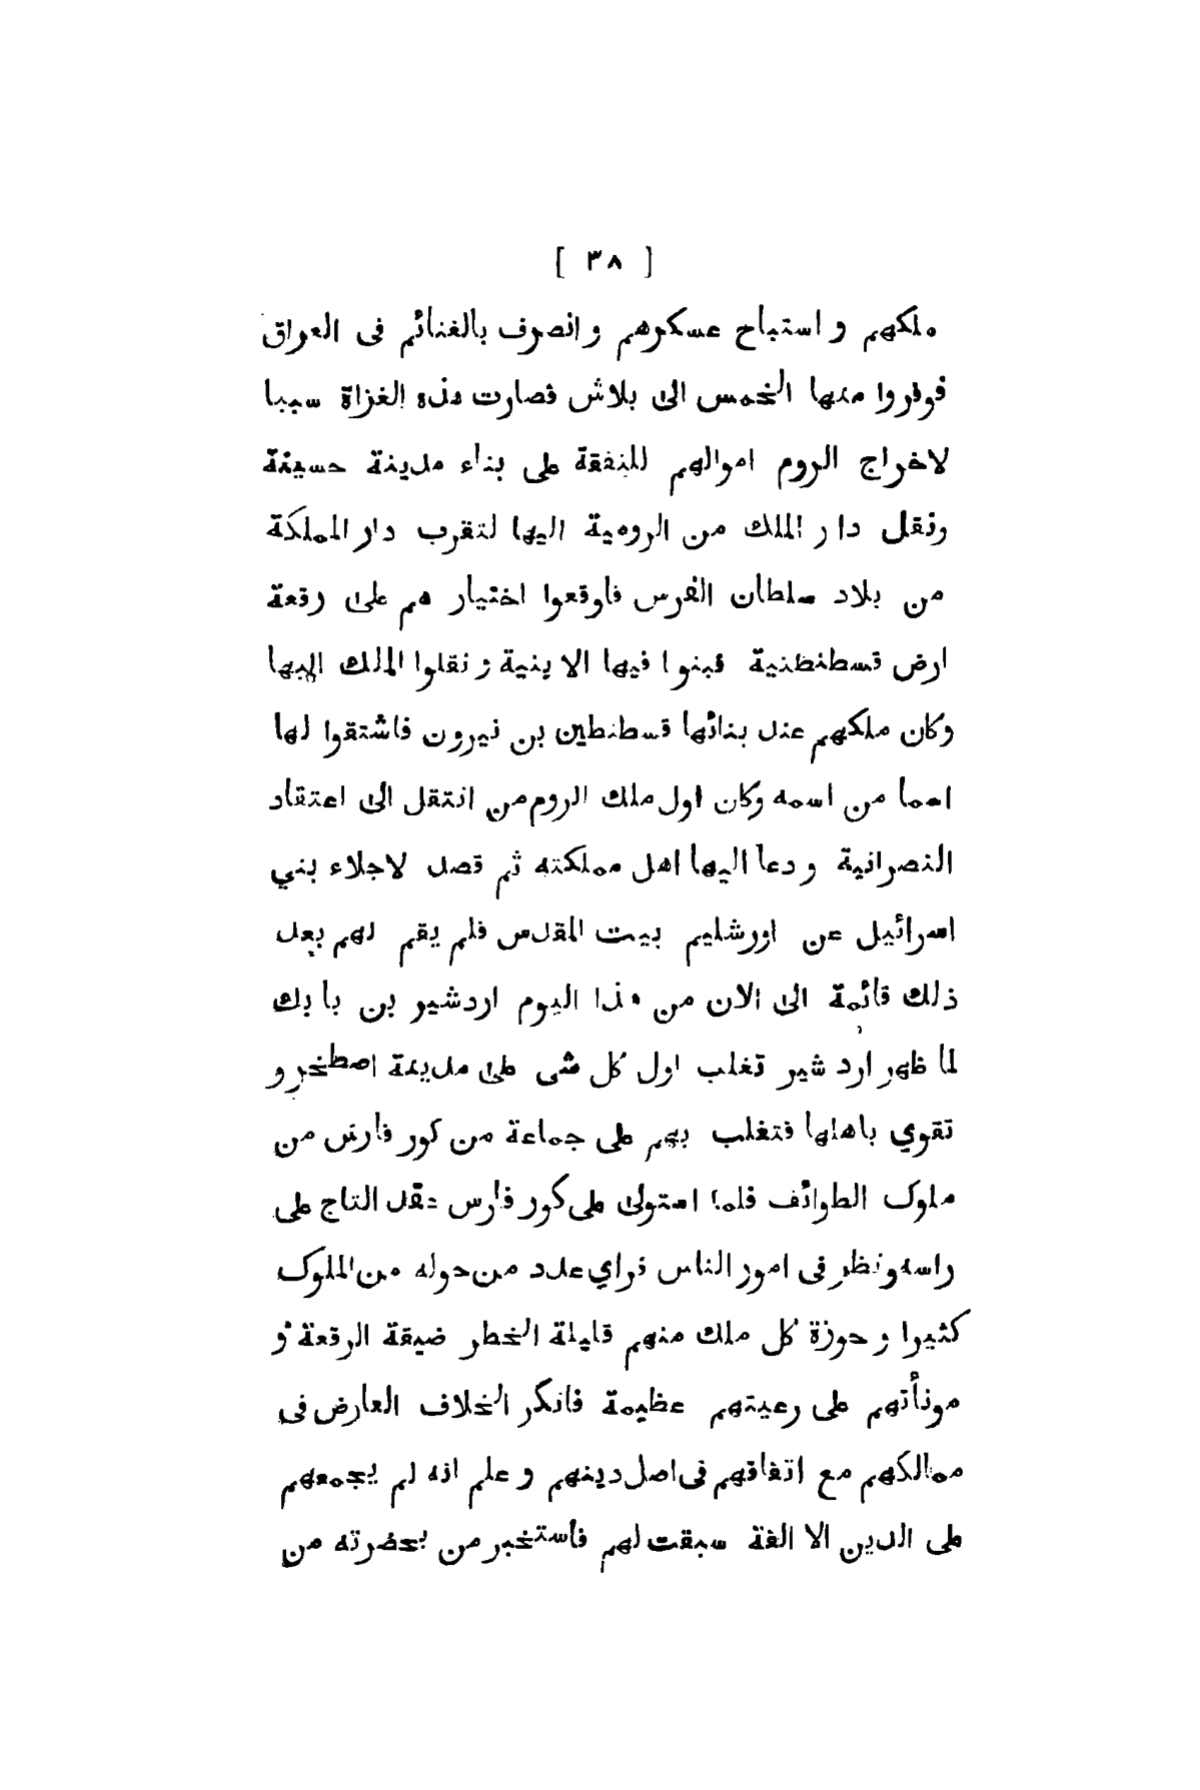 [ ٣٨ ]
ملكهم و استباح عسكرهم و انصرف بالغنائم فى العراق
فوفروا منها الخمس الى بلاش فصارت هذه الغزاة سببا
لاخراج الروم اموالهم للنفقة على بناء مدينة حسينة
ونقل دار الملك من الرومية اليها لتقرب دار المملكة
من بلاد سلطان الفرس فاوقعوا اختيار هم على رقعة
ارض قسطنطنية فبنوا فيها الا بنية و نقلوا الملك اليها
وكان ملكهم عند بنائها قسطنطين بن نيرون فاشتقوا لها
اسما من اسمه وكان اول ملك الروم من انتقل الى اعتقاد
النصرانية و دعا اليها اهل مملكته ثم قصد لاجلاء بني
اسرائيل عن اورشليم بيت المقدس فلم يقم لهم بعد
ذلك قائمة الى الان من هذا اليوم اردشير بن بابك
لما ظهر ارد شير تغلب اول كل شى على مدينة اصطخر و
تقوي باهلها فتغلب بهم على جماعة من كور فارس من
ملوك الطوائف فلما استولى على كور فارس عقد التاج على
راسه و نظر فى امور الناس فراي عدد من حوله من الملوك
كثيرا و حوزة كل ملك منهم قليلة الخطر ضيقة الرقعة و
مونأتهم على رعيتهم عظيمة فانكر الخلاف العارض فى
ممالكهم مع اتفاقهم فى اصل دينهم و علم انه لم يجمعهم
على الدين الا الفة سبقت لهم فاستخبر من بحضرته من